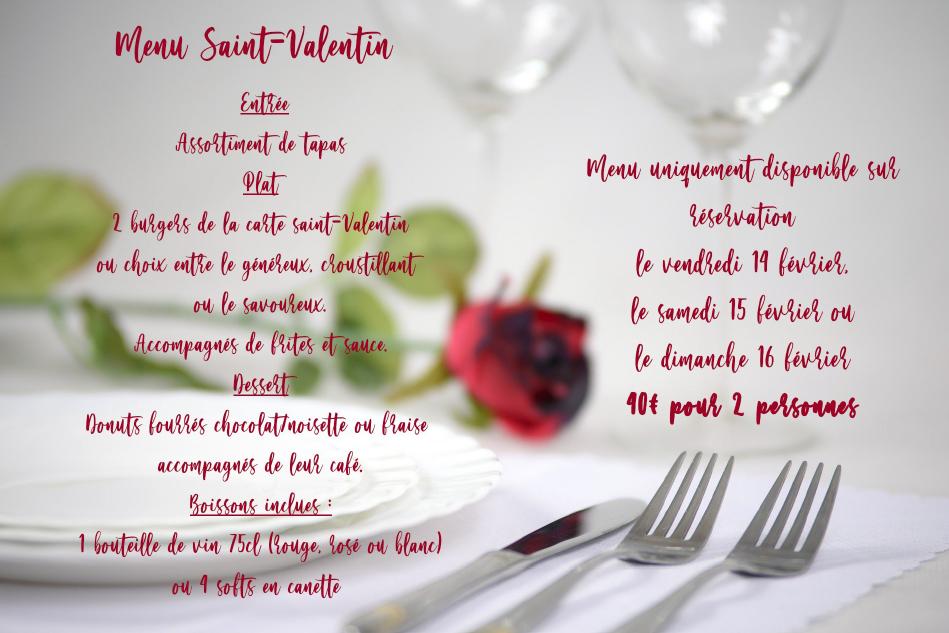 Menu Saint-Valentin
Entrée
Assortiment de tapas
Plat
2 burgers de la carte saint-Valentin
ou choix entre le généreux, croustillant
ou le savoureux.
Accompagnés de frites et sauce.
Dessert
Donuts fourrés chocolat/noisette ou fraise
accompagnés de leur café.
Boissons inclues :
1 bouteille de vin 75cl (rouge, rosé ou blanc)
ou 4 softs en canette
Menu uniquement disponible sur
réservation
le vendredi 14 février,
le samedi 15 février ou
le dimanche 16 février
40€ pour 2 personnes